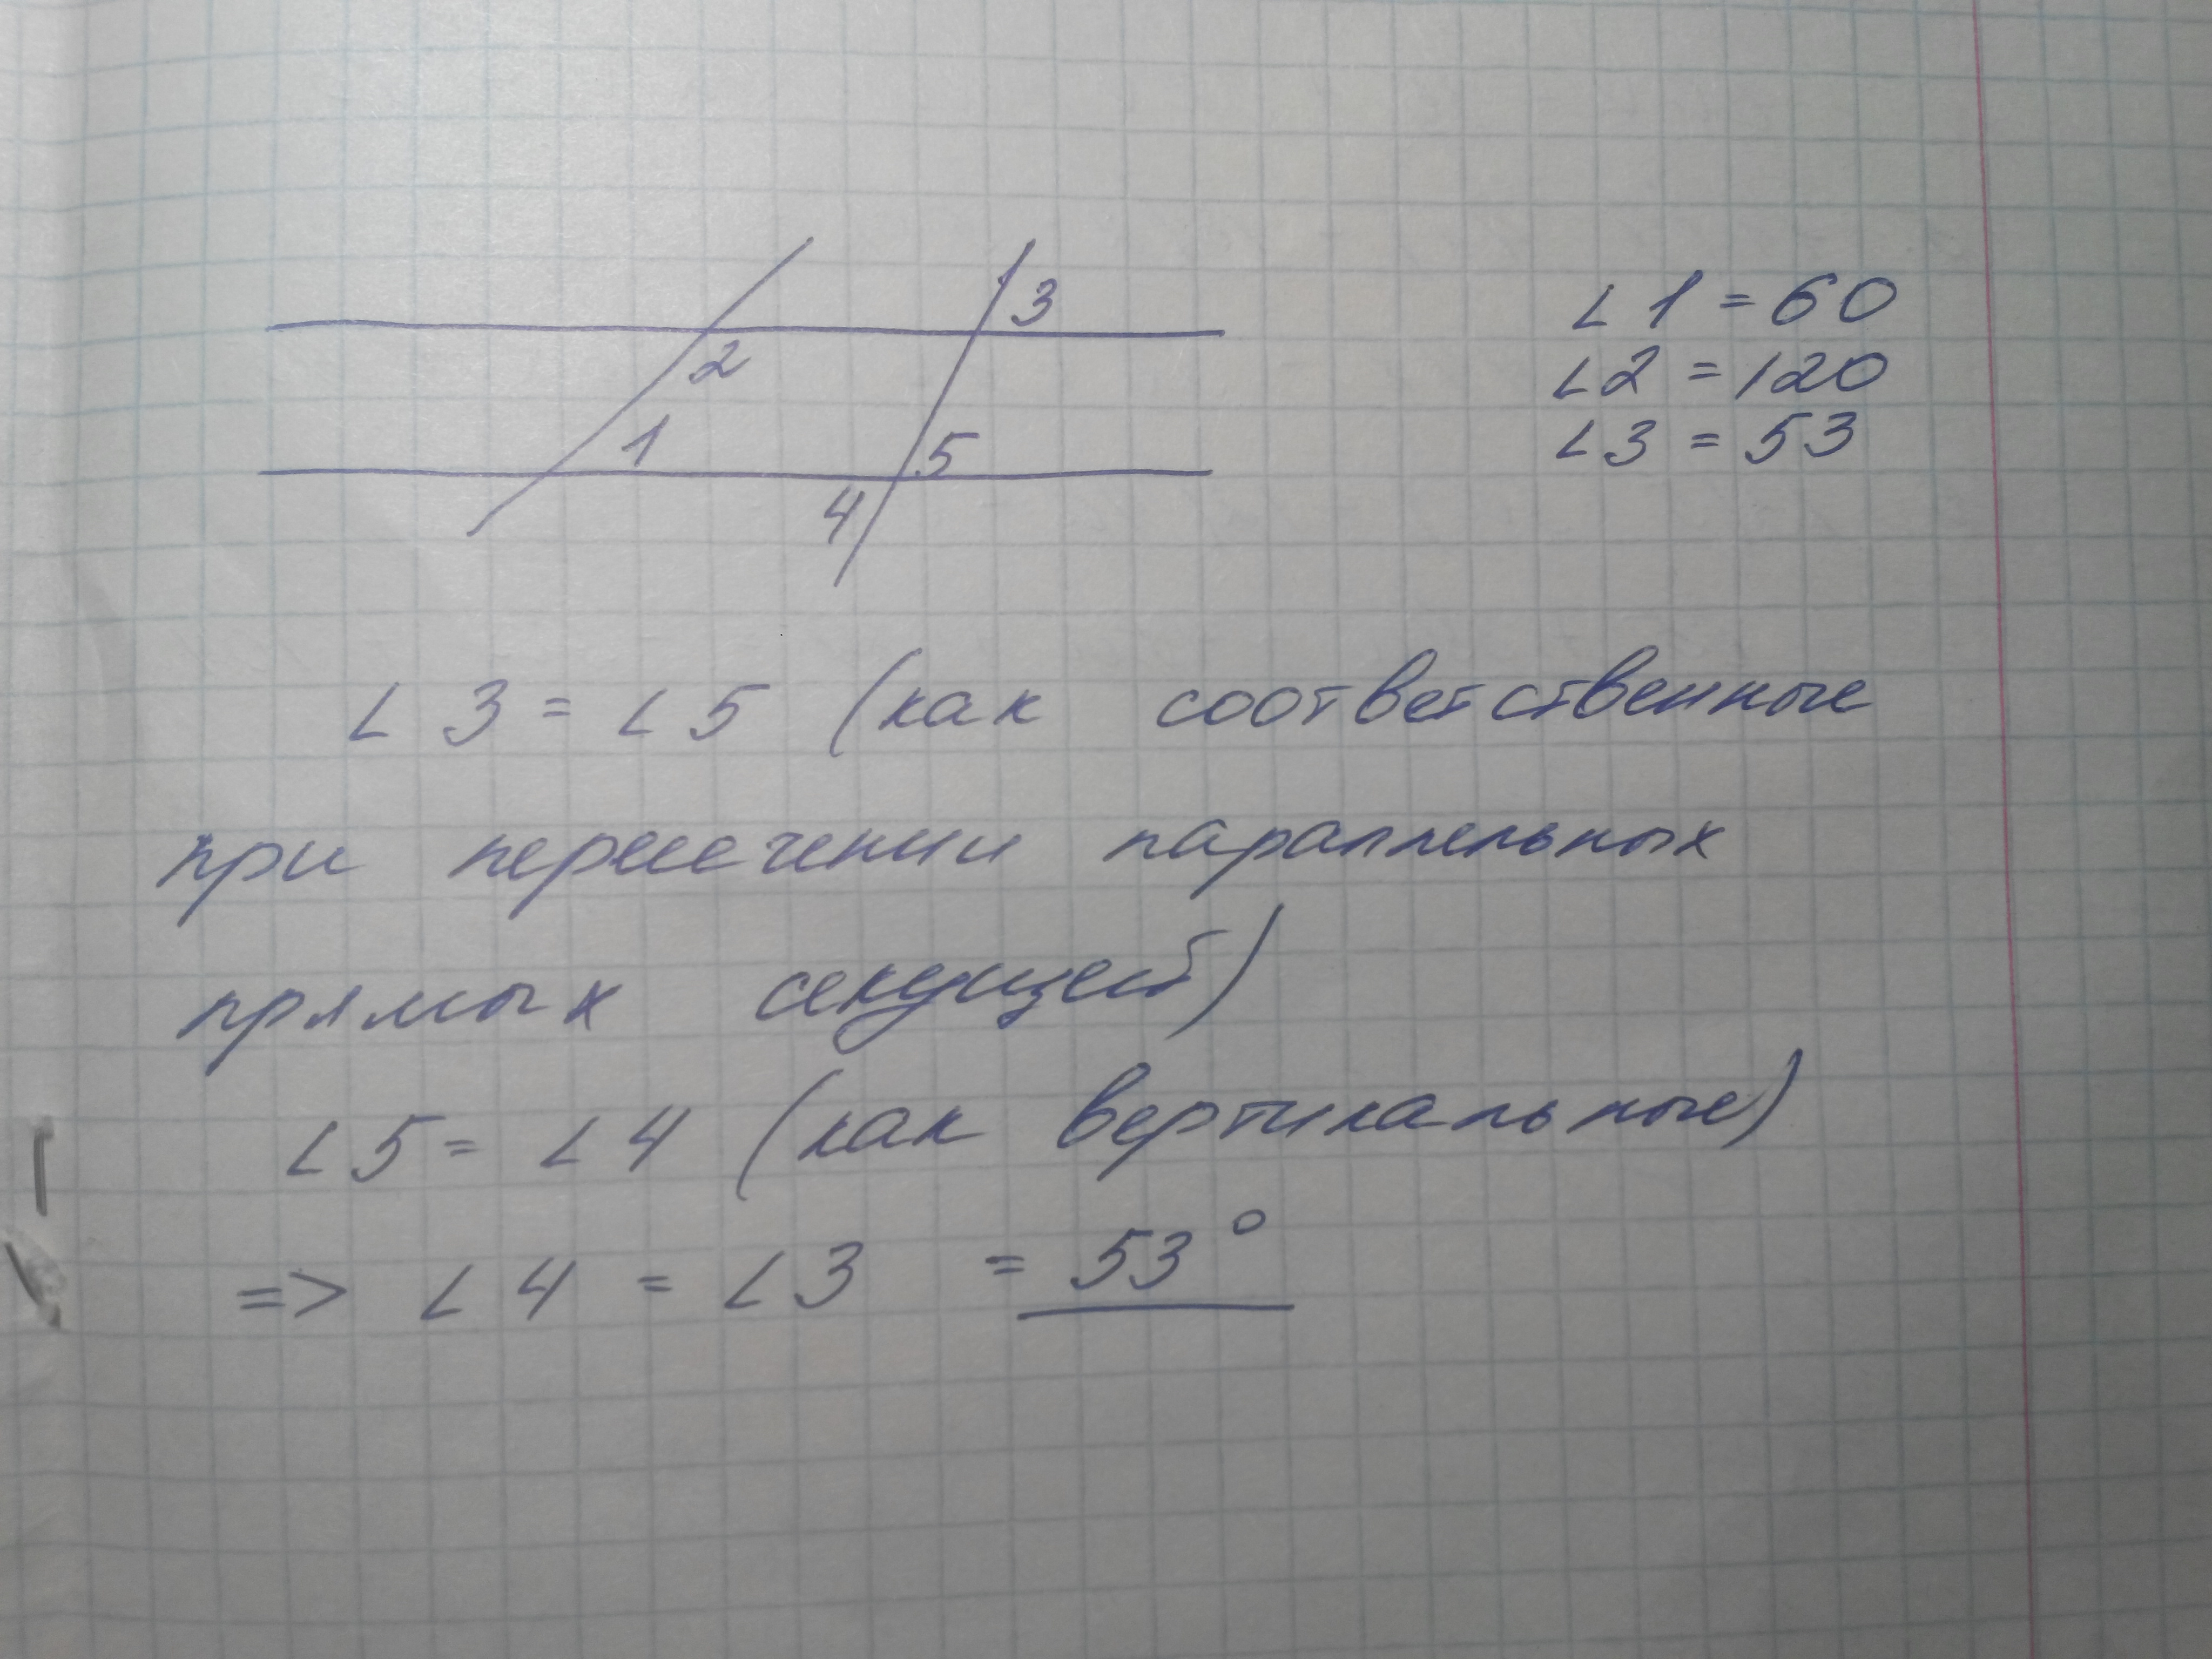 3
2
1
5
4
∠1 = 60
∠2 = 120
∠3 = 53
∠3 = ∠5 (как соответственные
при пересечении параллельных
прямых секущей)
∠5 = ∠4 (как вертикальные)
=> ∠4 = ∠3 = 53°